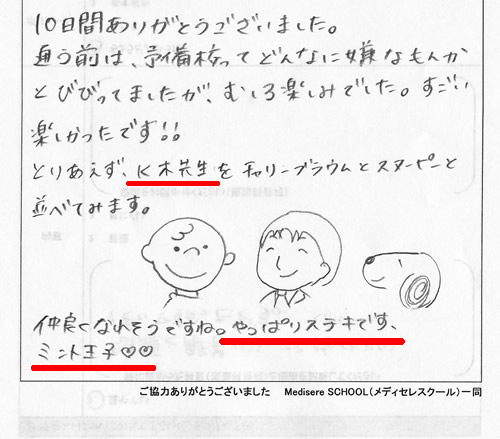 10日間ありがとうございました。
通う前は、予備校ってどんなに嫌なもんか
とびびってましたが、むしろ楽しみでした。すごい
楽しかったです!!
とりあえず、K木先生をチャリーブラウムとスヌーピーと
並べてみます。
仲良くなれそうですね。やっぱりステキです、
ミント王子♡♡
ご協力ありがとうございました　Medisere SCHOOL(メディセレスクール)一同